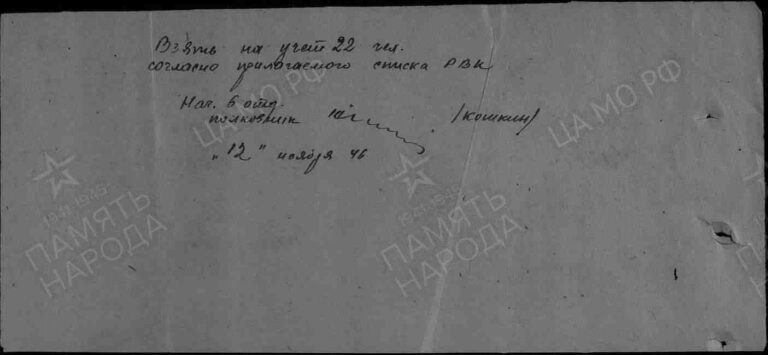 Взять на учет 22 чел.
согласно прилагаемого списка РВК
Нач. 6 отд.
полковник /Кошкин/
"12" ноября 46
ЦА МО РФ
ЦА МО РФ
1941-1945
ПАМЯТЬ
НАРОДА
1941-1945
ПАМЯТЬ
НАРОДА